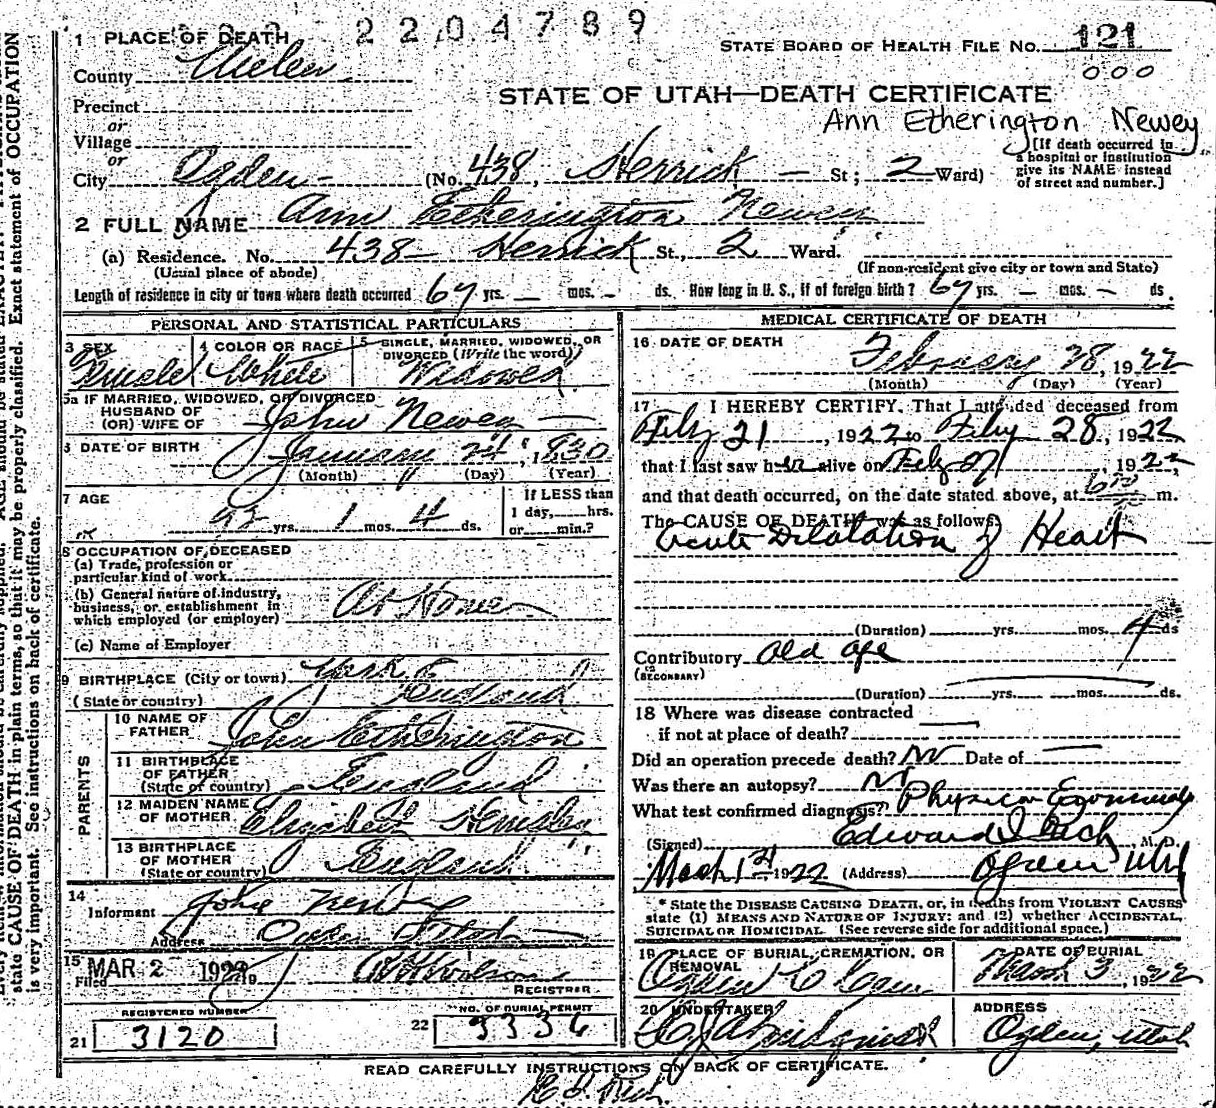 2204789
1 PLACE OF DEATH
STATE BOARD OF HEALTH FILE No. 121
000
County
STATE OF UTAH—DEATH CERTIFICATE
Precinct
or
Ann Etherington Newey
Village
or
City Ogden (No. 438, Herrick St; 2 Ward)
[If death occurred in
a hospital or institution
give its NAME instead
of street and number.]
2 FULL NAME Ann Etherington Newey
(a) Residence. No. 438 Herrick St., 2 Ward.
(Usual place of abode)
(If non-resident give city or town and State)
Length of residence in city or town where death occurred 67 yrs. — mos. - ds. How long in U. S., if of foreign birth? 67 yrs. — mos. — ds.
PERSONAL AND STATISTICAL PARTICULARS
3 SEX Female
4 COLOR OR RACE White
5 SINGLE, MARRIED, WIDOWED, OR
DIVORCED (Write the word)
Widowed
5a IF MARRIED, WIDOWED, OR DIVORCED
HUSBAND OF
(OR) WIFE OF John Newey
6 DATE OF BIRTH January 24, 1830
(Month) (Day) (Year)
7 AGE 92 yrs. 1 mos. 4 ds.
If LESS than
1 day, hrs.
or min.?
8 OCCUPATION OF DECEASED
(a) Trade, profession or
particular kind of work
(b) General nature of industry,
business, or establishment in
which employed (or employer) At Home
(c) Name of Employer
9 BIRTHPLACE (City or town) York
(State or country) England
PARENTS
10 NAME OF
FATHER John Etherington
11 BIRTHPLACE
OF FATHER
(State or country) England
12 MAIDEN NAME
OF MOTHER Elizabeth
13 BIRTHPLACE
OF MOTHER
(State or country) England
14
Informant John Newey
Address Ogden Utah
15
Filed MAR 2 1922
REGISTRAR
REGISTERED NUMBER
21 3120
NO. OF BURIAL PERMIT
22 3336
MEDICAL CERTIFICATE OF DEATH
16 DATE OF DEATH
February 28, 1922
(Month) (Day) (Year)
17 I HEREBY CERTIFY, That I attended deceased from
Feby 21, 1922 to Feby 28, 1922
that I last saw her alive on Feby 27, 1922
and that death occurred, on the date stated above, at m.
The CAUSE OF DEATH was as follows:
Acute Dilatation of Heart
(Duration) yrs. mos. 4 ds
Contributory Old age
(SECONDARY)
(Duration) yrs. mos. ds.
18 Where was disease contracted
if not at place of death?
Did an operation precede death? No Date of —
Was there an autopsy? No
What test confirmed diagnosis? Physical
(Signed) Edward I Rich, M. D.
March 1st 1922 (Address) Ogden Utah
* State the DISEASE CAUSING DEATH, or, in deaths from VIOLENT CAUSES
state (1) MEANS AND NATURE OF INJURY; and (2) whether ACCIDENTAL,
SUICIDAL OR HOMICIDAL. (See reverse side for additional space.)
19 PLACE OF BURIAL, CREMATION, OR
REMOVAL
Ogden
DATE OF BURIAL
March 3, 1922
20 UNDERTAKER
ADDRESS
Ogden, Utah
READ CAREFULLY INSTRUCTIONS ON BACK OF CERTIFICATE.
state CAUSE OF DEATH in plain terms, so that it may be properly classified. Exact statement of OCCUPATION
is very important. See instructions on back of certificate.